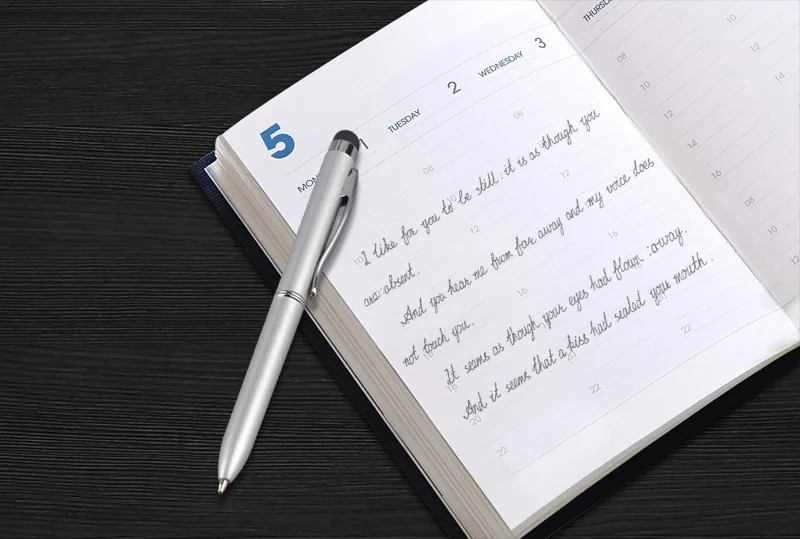 5
MON 1
TUESDAY 2
WEDNESDAY 3
I like for you to be still : it is as though you
are absent.
And you hear me from far away and my voice does
not touch you.
It seems as though your eyes had flown away.
And it seems that a kiss had sealed your mouth.
10
20
22
08
10
12
16
20
22
08
12
16
20
22
THURSD
08
10
12
14
16
10
12
14
08
10
12